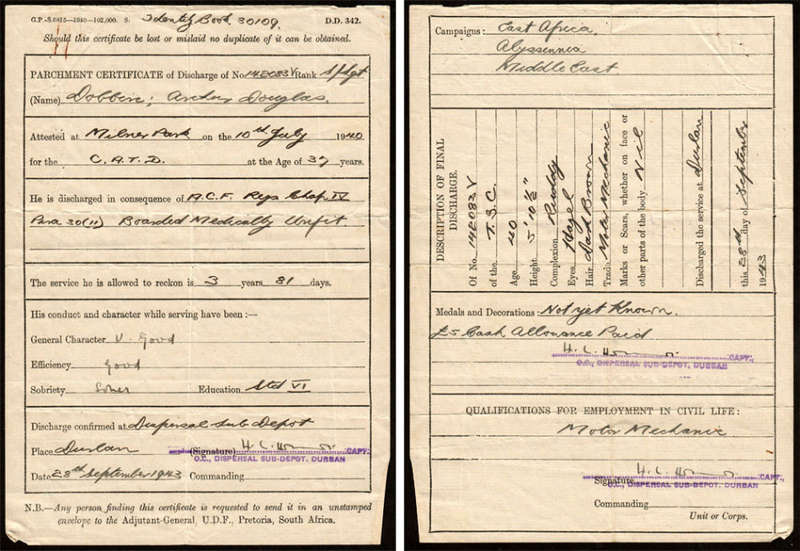 G.P.-S.6815—1940—102,000. S. Identity Book 30109. D.D. 342.
Should this certificate be lost or mislaid no duplicate of it can be obtained.
PARCHMENT CERTIFICATE of Discharge of No 142083V Rank S/Sgt
(Name) Dobbin; Archer Douglas.
Attested at Milner Park on the 10th July 1940
for the C.A.T.D. at the Age of 37 years.
He is discharged in consequence of A.C.F. Regs Chap. IV
Para 30(11) Boarded Medically Unfit
The service he is allowed to reckon is 3 years 81 days.
His conduct and character while serving have been:—
General Character V. Good
Efficiency Good
Sobriety Sober Education Std VI
Discharge confirmed at Dispersal Sub Depot
Place Durban (Signature) CAPT.
O.C., DISPERSAL SUB-DEPOT. DURBAN
Date 28th September 1943 Commanding
N.B.—Any person finding this certificate is requested to send it in an unstamped
envelope to the Adjutant-General, U.D.F., Pretoria, South Africa.
Campaigns: East Africa.
Abyssennia
Middle East
DESCRIPTION OF FINAL
DISCHARGE.
Of No. 142083V
of the T.S.C.
Age 40
Height 5' 10½"
Complexion Ruddy
Eyes Hazel
Hair Dark Brown
Trade Motor Mechanic
Marks or Scars, whether on face or
other parts of the body Nil
Discharged the service at Durban
this 28th day of September
1943
Medals and Decorations: Not yet Known.
£5 Cash Allowance Paid
CAPT.
O.C., DISPERSAL SUB-DEPOT. DURBAN
QUALIFICATIONS FOR EMPLOYMENT IN CIVIL LIFE:
Motor Mechanic
Signature CAPT.
O.C., DISPERSAL SUB-DEPOT. DURBAN
Commanding
Unit or Corps.